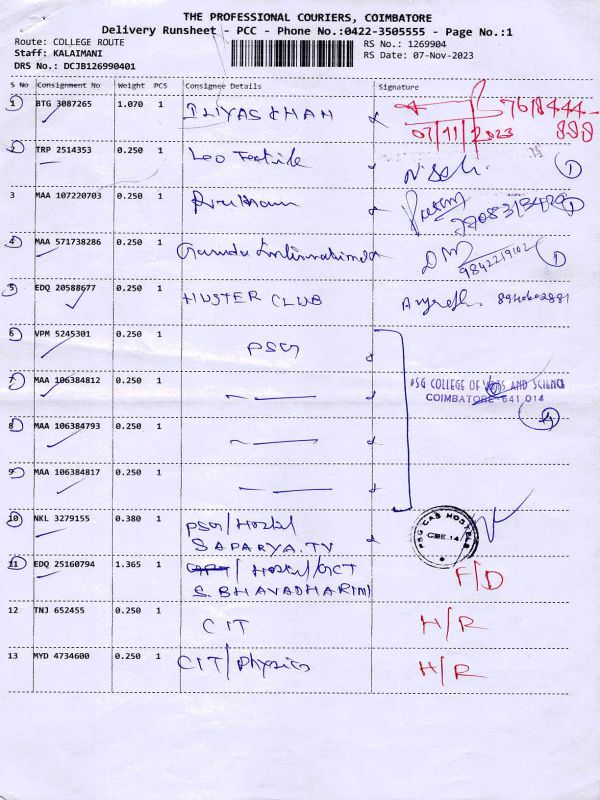 THE PROFESSIONAL COURIERS, COIMBATORE
Delivery Runsheet - PCC - Phone No.:0422-3505555 - Page No.:1
Route: COLLEGE ROUTE
Staff: KALAIMANI
DRS No.: DCJB126990401
RS No.: 1269904
RS Date: 07-Nov-2023
S No Consignment No Weight PCS Consignee Details Signature
1 BTG 3087265 1.070 1 ILIYASKHAN
07/11/2023
2 TRP 2514353 0.250 1 Leo Textile 1
3 MAA 107220703 0.250 1
4 MAA 571738286 0.250 1 International
9842219102 1
5 EDQ 20588677 0.250 1 HUSTER CLUB 8940602881
6 VPM 5245301 0.250 1 PSG
7 MAA 106384812 0.250 1
PSG COLLEGE OF ARTS AND SCIENCE
COIMBATORE-641 014
4
8 MAA 106384793 0.250 1
9 MAA 106384817 0.250 1
10 NKL 3279155 0.380 1 PSG/Hostel
SAPARYA.TV
PSG CAS HOSTELS
CBE.14
11 EDQ 25160794 1.365 1 / Hostel/GCT
S.BHAVADHARINI
F/D
12 TNJ 652455 0.250 1 CIT H/R
13 MYD 4734600 0.250 1 CIT/Physics H/R